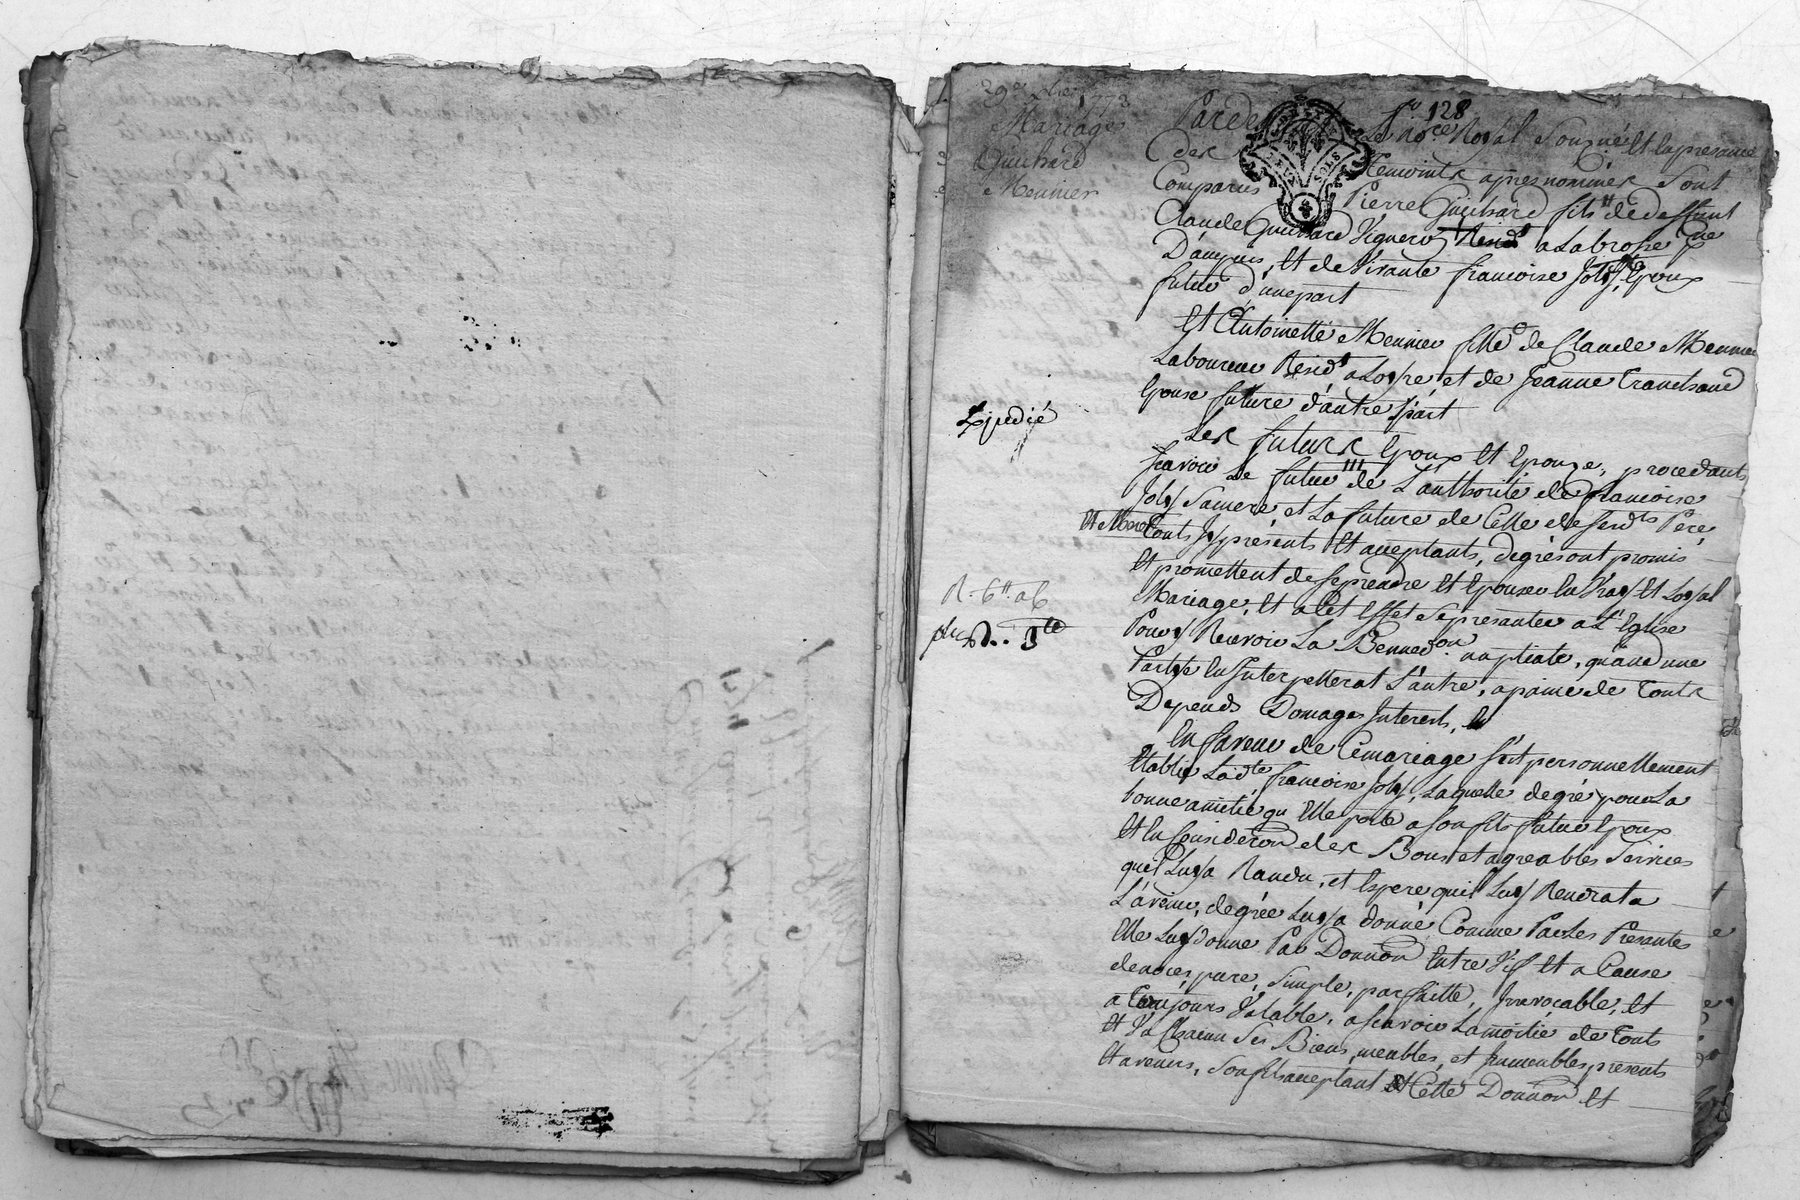 29e Xbre 1773
Mariage
Guichard
Meunier
Expedié
R. 6tt
128
Parde le no.re Royal Sousigné Et en presance
des Temoints apres nommés Sont
Comparus Pierre Guichard fils de deffunt
Claude Guichard Vigneron Resid.t a Labrosse
D'ampuis, Et de Vivante francoise Joly, Epoux
futur d'unepart
Et Antoinette Meunier fille de Claude Meunier
Laboureur Resid.t a Loyre et de Jeanne Tranchand
Epouse future d'autre part
Les futurs Epoux Et Epouze, procedants
scavoir Le futur de L'authorité de francoise
Joly Samere et La future de Celle de ses d.ts Pere
Et Mere Touts Jcy présents Et acceptants, degrés ont promis
Et promettent de seprendre et Epouser En Vray Et Loyal
Mariage, Et a Cet Effet Sepresanter a L'Eglise
Pour y Recevoir La Bened.on nuptiale, quand une
Partye En Interpellerat L'autre, apaine de Touts
Depends Domages Interests,
En faveur de Cemariage s'est personnellement
Etablie Lad.te francoise Joly, Laquelle degré pour La
bonne amitié qu'Elle porte a son fils futur Epoux
Et En Consideron des Bons et agreables Services
quil Luy a Randu, et Espere quil Luy Rendrat a
L'avenir, degrée Luy a donné Comme Par Les Presantes
Elle Luy donne Par Donnon Entre Vif Et a Cause
denoces, pure, Simple, parfaitte, Jrrevocable, Et
a Toujours Valable, a scavoir Lamoitié de Touts
Et Un Chacun Ses Biens, meubles, et Jmmeubles presents
Et avenirs, Son fils acceptant Cette Donnon Et